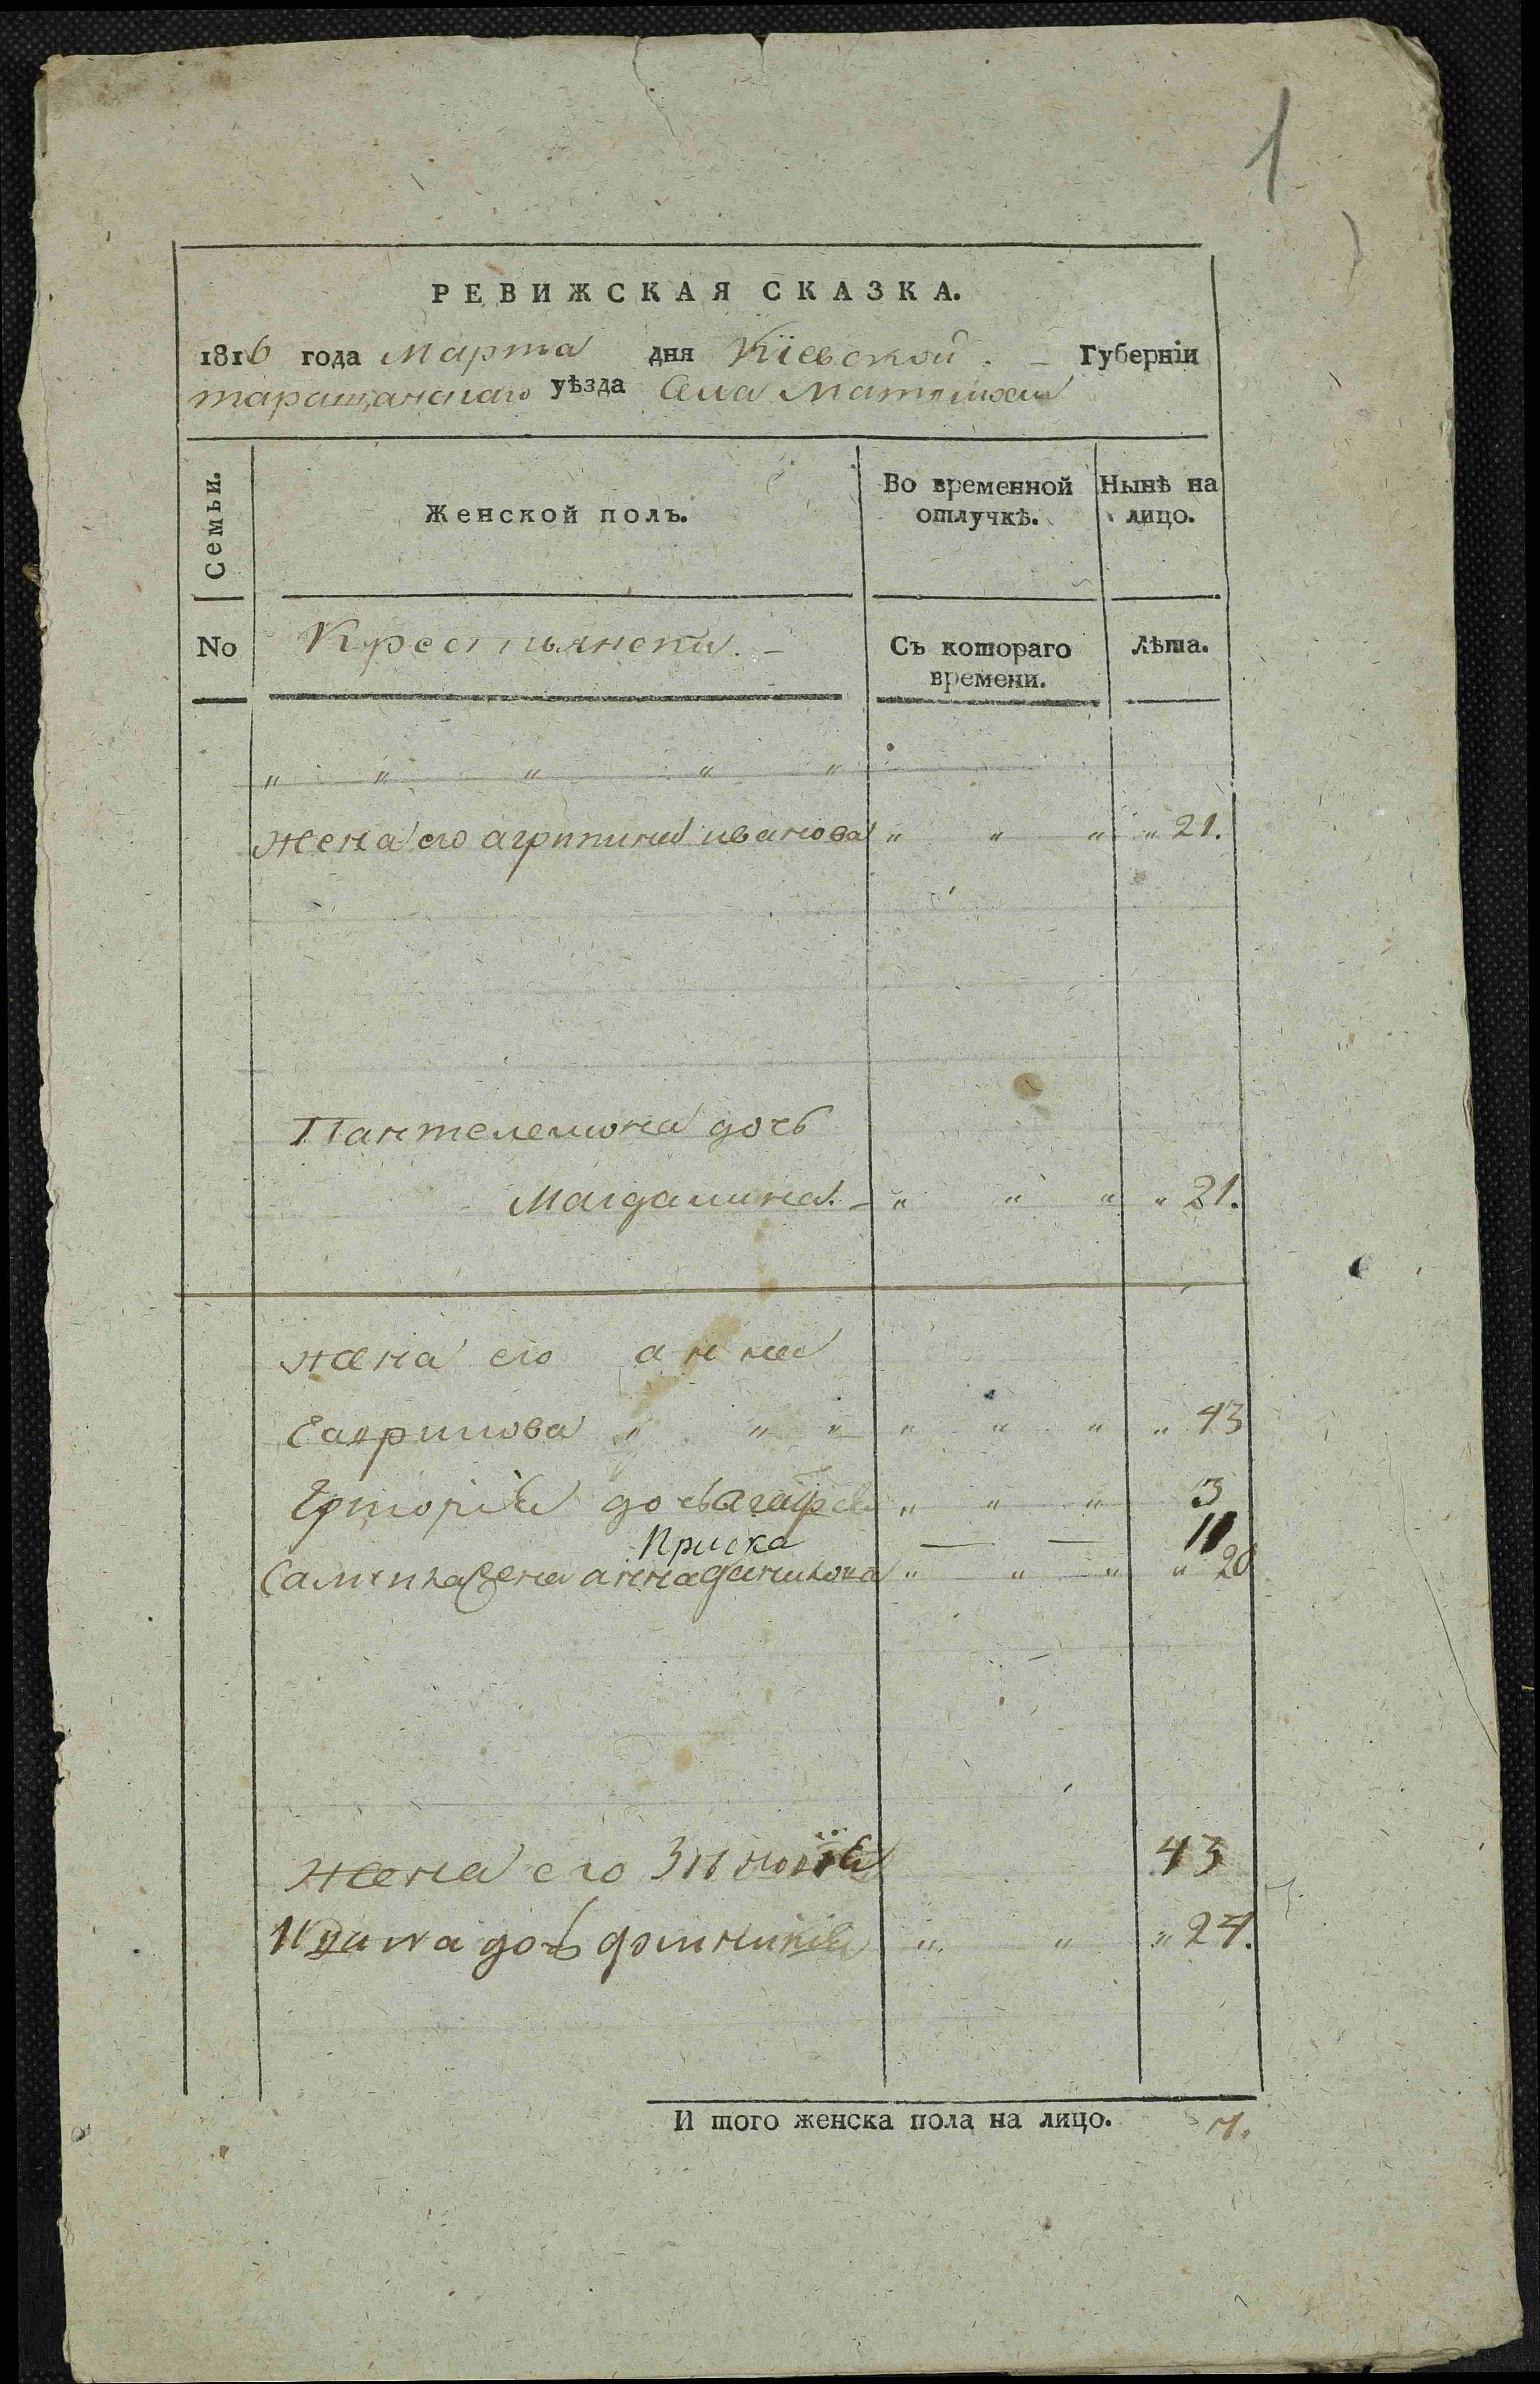 1
РЕВИЖСКАЯ СКАЗКА.
1816 года Марта дня Кіевской Губерніи
таращанскаго уѣзда Села
Семьи. Женской полъ. Во временной отлучкѣ. Нынѣ на лицо.
No Крестьянски. Съ котораго времени. Лѣта.
„ „ „ „ „
жена его агрипина иванова „ „ „ „ 21.
Пантелемона дочь
Магдалина. „ „ „ „ 21.
жена его анна
Гаврилова „ „ „ „ „ „ „ 43
дочь Агафія „ „ „ 3
Приска — — 11
жена анна данилова „ „ „ „ 20
жена его 43
дочь „ „ „ 24.
И того женска пола на лицо. 7.